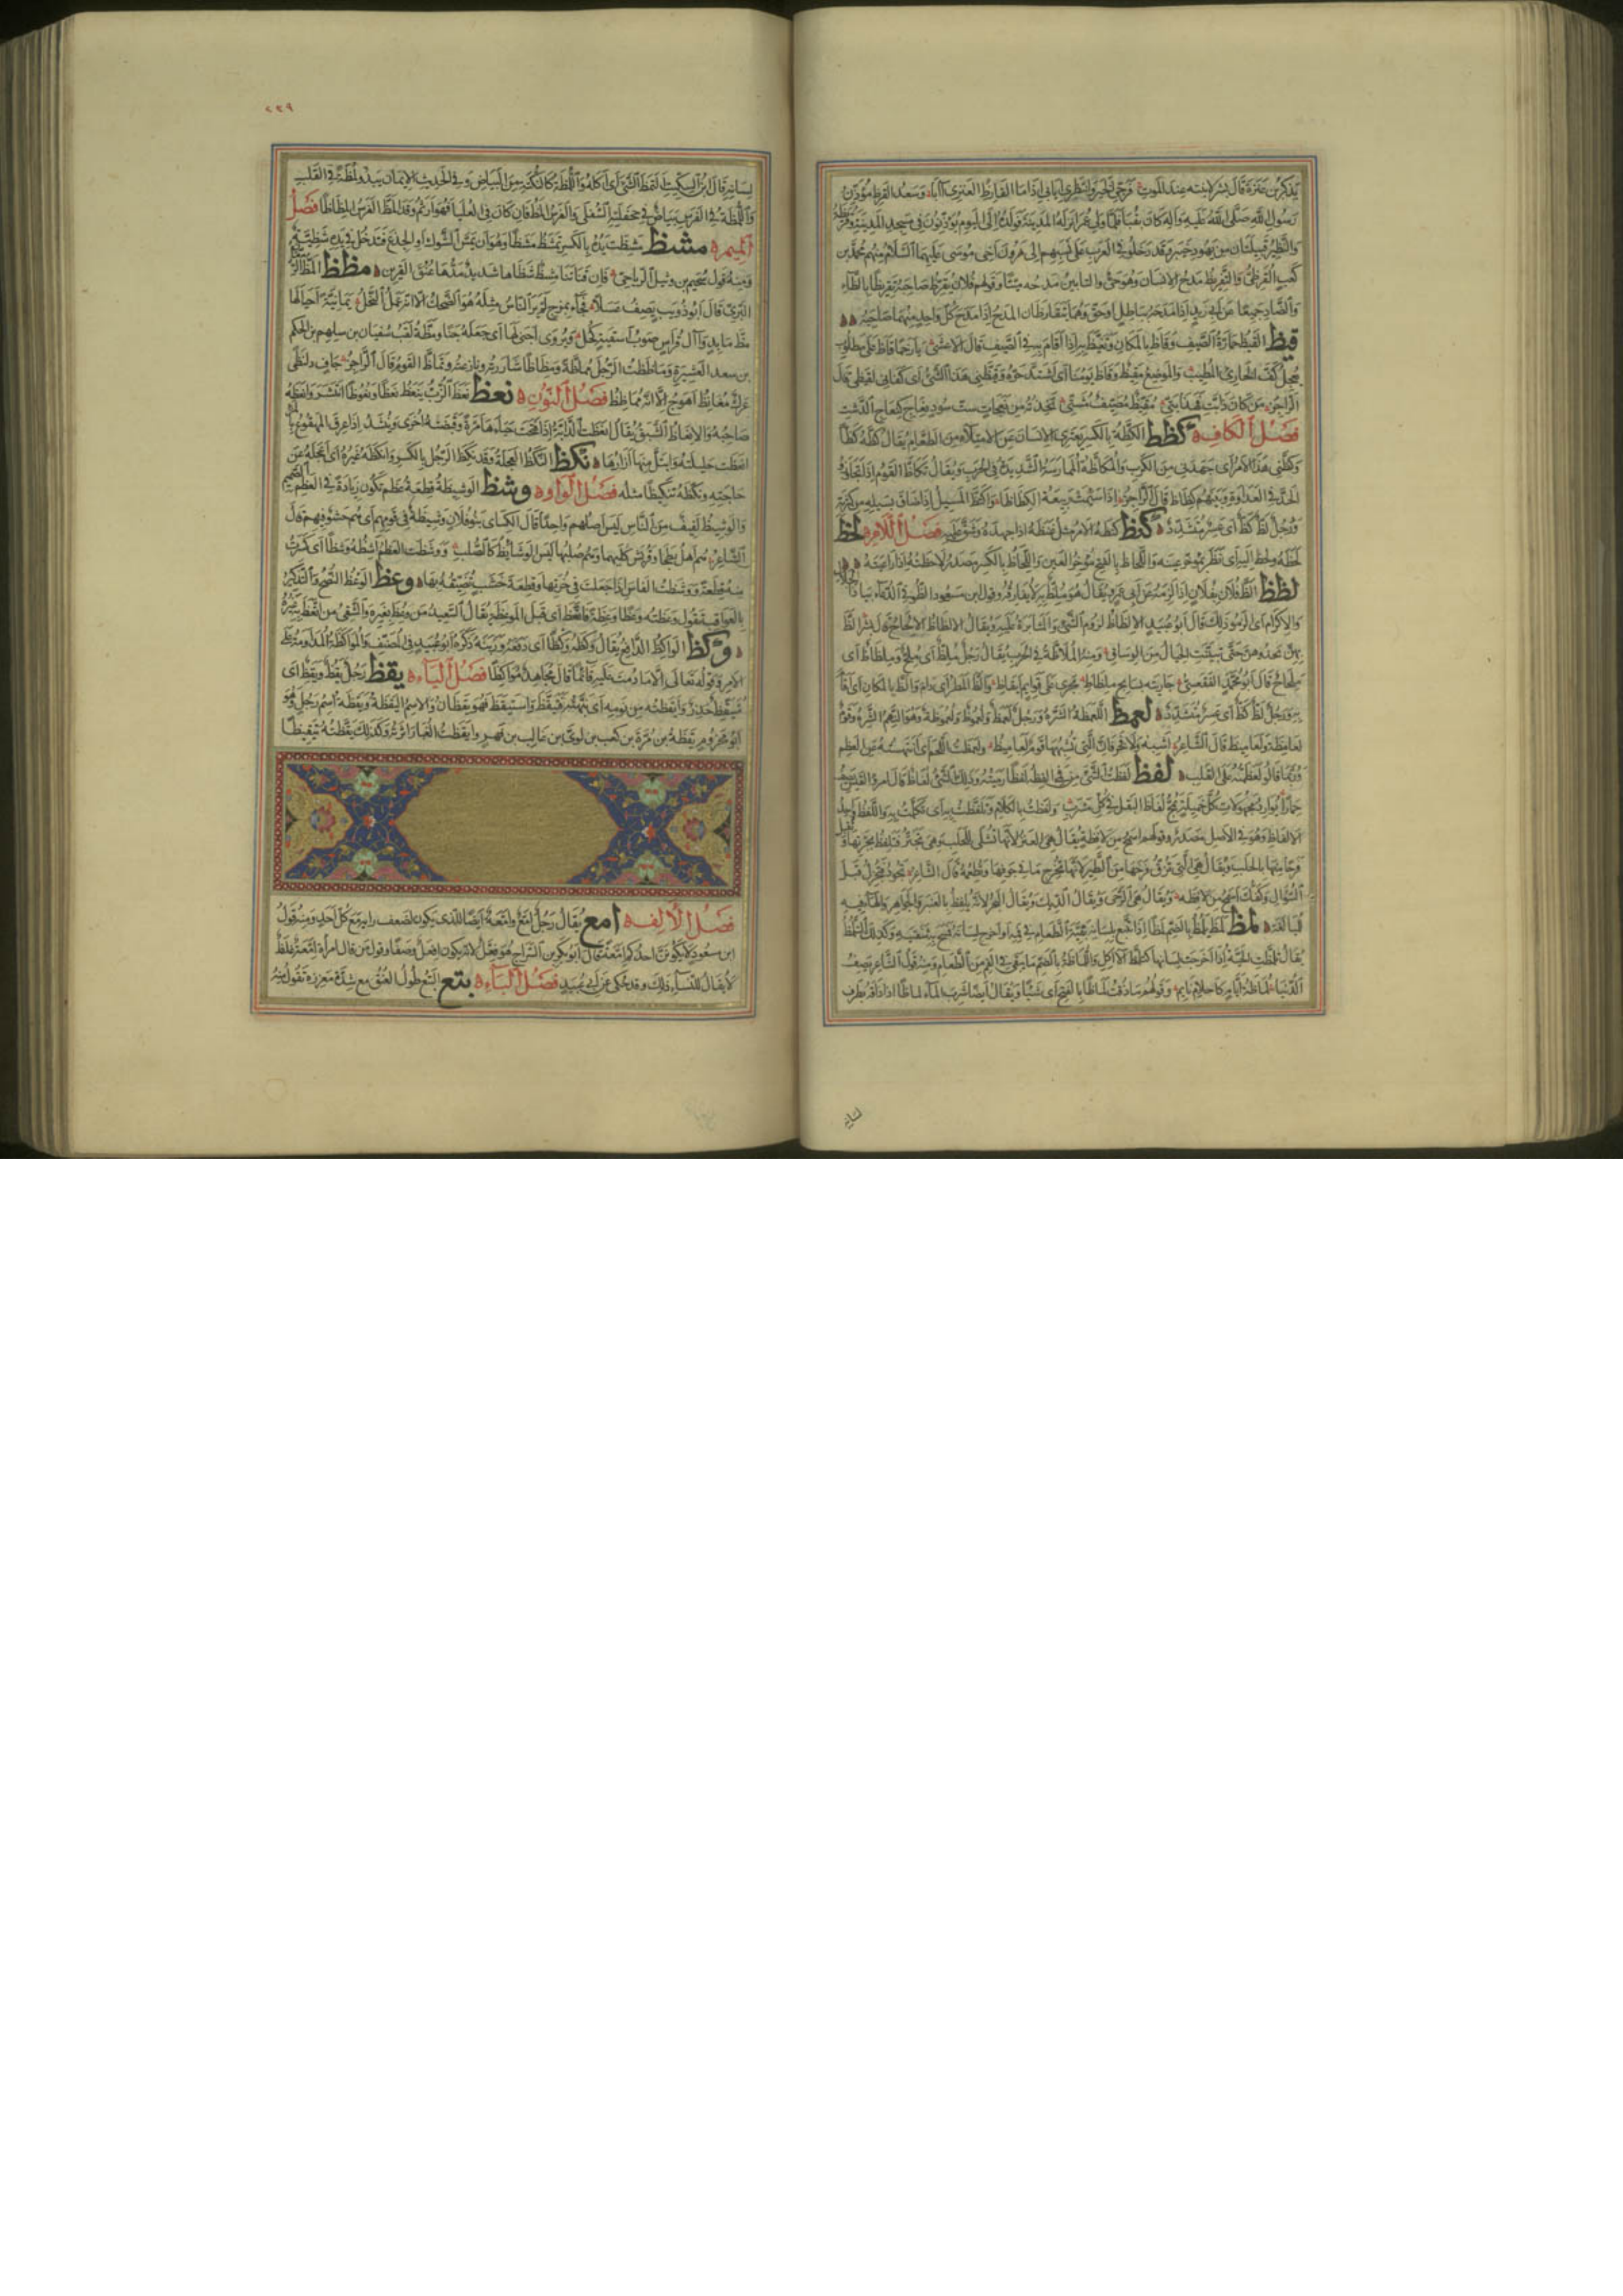 يذكر بن عنزة قال بشر لابنته عند الموت فرجي الخير وانتظري إيابي إذا ما القارظ العنزي آبا وسعد القرظ مؤذن
رسول الله صلى الله عليه وآله كان بقباء فلما ولي عمر أنزله المدينة فولده إلى اليوم يؤذنون في مسجد المدينة وقريظة
والنضير قبيلتان من يهود خيبر وقد دخلوا في العرب على نسبهم إلى هرون أخي موسى عليهما السلام منهم محمد بن
كعب القرظي والتقريظ مدح الإنسان وهو حي والتأبين مدحه ميتا وقولهم فلان يقرظ صاحبه تقريظا بالظاء
والضاد جميعا عن أبي زيد إذا مدحه بباطل أو حق وهما يتقارظان المدح إذا مدح كل واحد منهما صاحبه
قيظ القيظ حمارة الصيف وقاظ بالمكان وتقيظ به إذا أقام به في الصيف قال الأعشى يا رخما قاظ على مطلوب
يعجل كف الخارئ المطيب والموضع مقيظ وقاظ يومنا أي اشتد حره وقيظني هذا الشيء أي كفاني لقيظي قال
الراجز من كان ذا بت فهذا بتي مقيظ مصيف مشتي تخذته من نعجات ست سود نعاج كنعاج الدشت
فصل الكاف كظظ الكظة بالكسر شيء يعتري الإنسان عن الامتلاء من الطعام يقال كظه كظا
وكظني هذا الأمر أي جهدني من الكرب والمكاظة الممارسة الشديدة في الحرب ويقال تكاظ القوم إذا تجاوزوا
الحد في العداوة وبينهم كظاظ قال الراجز إذ سئمت ربيعة الكظاظا واكتظ المسيل إذا ضاق بسيله من كثرته
ورجل لظ كظ أي عسر متشدد كنظ كنظه الأمر مثل غنظه إذا جهده وشق عليه فصل اللام لحظ
لحظه ولحظ إليه أي نظر بمؤخر عينه واللحاظ بالفتح مؤخر العين واللحاظ بالكسر مصدر لاحظته إذا راعيته
لظظ ألظ فلان بفلان إذا لزمه عن أبي عمرو يقال هو ملظ به لا يفارقه وقول ابن مسعود ألظوا في الدعاء بيا ذا الجلال
والإكرام أي الزموا ذلك قال أبو عبيد الإلظاظ لزوم الشيء والمثابرة عليه ويقال الإلظاظ الإلحاح قال بشر ألظ
بهن يحدوهن حتى تبينت الحيال من الوساق ومنه الملاظة في الحرب يقال رجل ملظ أي ملح وملظاظ أي
ملحاح قال أبو محمد الفقعسي جاريته بسابح ملظاظ يجري على قوائم أيقاظ وألظ المطر أي دام وألظ بالمكان أي أقام
به ورجل لظ كظ أي عسر متشدد لعمظ اللعمظة الشره ورجل لعمظ ولعموظ ولعموظة وهو النهم الشره وقوم
لعامظة ولعاميظ قال الشاعر أشبه ولا فخر فإن التي تشبهها قوم لعاميظ ولعمظت اللحم أي انتهسته عن العظم
وربما قالوا لعظمته على القلب لفظ لفظت الشيء من في ألفظه لفظا رميته وذلك الشيء لفاظة قال امرؤ القيس يصف
حمارا يوارد مجهولات كل خميلة يمج لفاظ البقل في كل مشرب ولفظت بالكلام وتلفظت به أي تكلمت به واللفظ واحد
الألفاظ وهو في الأصل مصدر وقولهم أسمح من لافظة يقال هي العنز لأنها تشلى للحلب وهي تجتر فتلفظ بجرتها وتقبل
فرحا منها بالحلب ويقال هي التي تزق فرخها من الطير لأنها تخرج ما في جوفها وتطعمه قال الشاعر تجود فتجزل قبل
السؤال وكفك أسمح من لافظه ويقال هي الرحى ويقال الديك ويقال البحر لأنه يلفظ بالعنبر والجواهر والهاء فيه
للمبالغة لمظ لمظ يلمظ بالضم لمظا إذا تتبع بلسانه بقية الطعام في فمه أو أخرج لسانه فمسح به شفتيه وكذلك التلمظ
يقال تلمظت الحية إذا أخرجت لسانها كتلمظ الآكل واللماظة بالضم ما يبقى في الفم من الطعام ومنه قول الشاعر يصف
الدنيا لماظة أيام كأحلام نائم وقولهم ما ذقت لماظا بالفتح أي شيئا ويقال أيضا شرب الماء لماظا إذا ذاقه بطرف
لسانه
٢٢٩
لسانه قال ابن السكيت لمظ الشيء أي أكله واللمظة كالنكتة من البياض وفي الحديث الإيمان يبدو لمظة في القلب
واللمظة في الفرس بياض في جحفلته السفلى والفرس ألمظ فإن كان في العليا فهو أرثم وقد المظ الفرس المظاظا فصل
الميم مشظ مشظت يده بالكسر تمشظ مشظا وهو أن تمس الشوك أو الجذع فتدخل في يده شظية
ومنه قول سحيم بن وثيل الرياحي فإن قناتنا مشظ شظاها شديد مدها عنق القرين مظظ المظ الرمان
البري قال أبو ذؤيب يصف عسلا فجاء بمزج لم ير الناس مثله هو الضحك إلا أنه عمل النحل يمانية أحيا لها
مظ مأبد وآل قراس صوب أسقية كحل ويروى أجنى لها أي جعله جنا ومظة لقب سفيان بن سلهم بن الحكم
بن سعد العشيرة وماظظت الرجل مماظة ومظاظا شاررته ونازعته وتماظ القوم قال الراجز جاف دلنظى
عرك مغانظ أهوج إلا أنه مماظظ فصل النون نعظ نعظ الزب ينعظ نعظا ونعوظا انتشر وأنعظه
صاحبه والإنعاظ الشبق يقال أنعظت الدابة إذا فتحت حياءها مرة وقبضته أخرى وينشد إذا عرق المهقوع بالمرء
أنعظت حليلته وابتل منها إزارها نكظ النكظة العجلة وقد نكظ الرجل بالكسر وأنكظه غيره أي أعجله عن
حاجته ونكظه تنكيظا مثله فصل الواو وشظ الوشيظة قطعة عظم تكون زيادة في العظم الصميم
والوشيظ لفيف من الناس ليس أصلهم واحدا قال الكسائي بنو فلان وشيظة في قومهم أي هم حشو فيهم قال
الشاعر هم أهل بطحاوي قريش كليهما وهم صلبها ليس الوشائظ كالصلب ووشظت العظم أشظه وشظا أي كسرت
منه قطعة ووشظت الفأس إذا جعلت في خرتها قطعة خشب تضيقه بها وعظ الوعظ النصح والتذكير
بالعواقب تقول وعظته وعظا وعظة فاتعظ أي قبل الموعظة يقال السعيد من وعظ بغيره والشقي من اتعظ به غيره
وكظ الواكظ الدافع يقال وكظه وكظا أي دفعه وزبنه ذكره أبو عبيد في المصنف والمواكظة المداومة على
الأمر وقوله تعالى إلا ما دمت عليه قائما قال مجاهد مواكظا فصل الياء يقظ رجل يقظ ويقظ أي
متيقظ حذر وأيقظته من نومه أي نبهته فتيقظ واستيقظ فهو يقظان والاسم اليقظة ويقظة اسم رجل وهو
أبو مخزوم يقظة بن مرة بن كعب بن لؤي بن غالب بن فهر وأيقظت الغبار أثرته وكذلك يقظته تيقيظا
فصل الألف أمع يقال رجل إمع وإمعة أيضا للذي يكون لضعف رأيه مع كل أحد ومنه قول
ابن مسعود لا يكونن أحدكم إمعة قال أبو بكر بن السراج هو فعل لأنه لا يكون إفعل وصفا وقول من قال امرأة إمعة غلط
لا يقال للنساء ذلك وقد حكي عن أبي عبيد فصل الباء بتع البتع طول العنق مع شدة مغرزه تقول منه